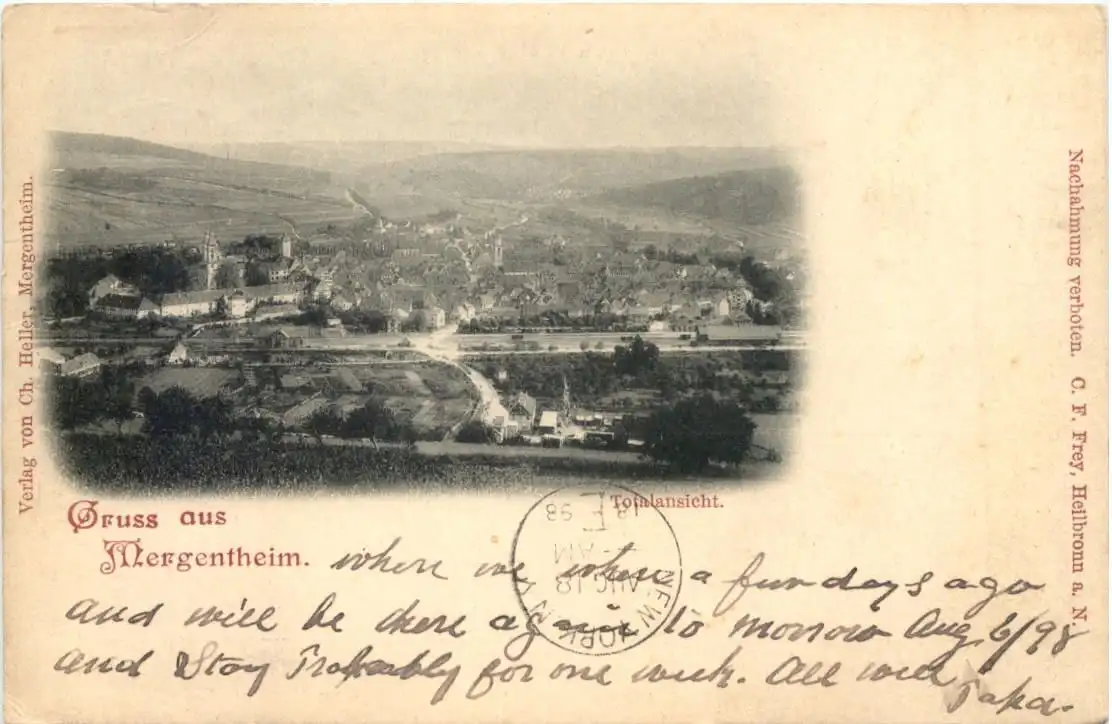 Verlag von Ch. Heller, Mergentheim.
Nachahmung verboten. C. F. Frey, Heilbronn a. N.
Totalansicht.
Gruss aus
Mergentheim.
where we where a fun days ago
and will be there again to morrow Aug 6/98
and Stay Probably for one week. All well
Papa.
NEW YORK N
AUG 18
AM
98